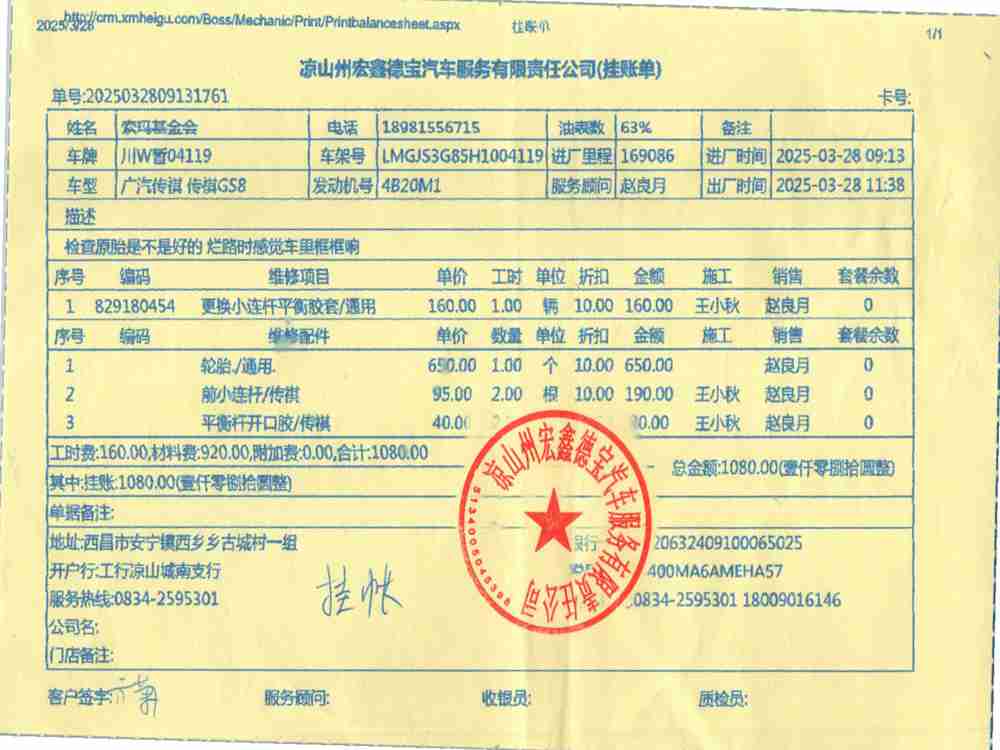 http://crm.xmheigu.com/Boss/Mechanic/Print/Printbalancesheet.aspx
2025/3/28 挂账单 1/1
凉山州宏鑫德宝汽车服务有限责任公司(挂账单)
单号:2025032809131761 卡号:
姓名 索玛基金会 电话 18981556715 油表数 63% 备注
车牌 川W暂04119 车架号 LMGJS3G85H1004119 进厂里程 169086 进厂时间 2025-03-28 09:13
车型 广汽传祺 传祺GS8 发动机号 4B20M1 服务顾问 赵良月 出厂时间 2025-03-28 11:38
描述
检查原胎是不是好的 烂路时感觉车里框框响
序号 编码 维修项目 单价 工时 单位 折扣 金额 施工 销售 套餐余数
1 829180454 更换小连杆平衡胶套/通用 160.00 1.00 辆 10.00 160.00 王小秋 赵良月 0
序号 编码 维修配件 单价 数量 单位 折扣 金额 施工 销售 套餐余数
1 轮胎./通用. 650.00 1.00 个 10.00 650.00 赵良月 0
2 前小连杆/传祺 95.00 2.00 根 10.00 190.00 王小秋 赵良月 0
3 平衡杆开口胶/传祺 40.00 王小秋 赵良月 0
工时费:160.00,材料费:920.00,附加费:0.00,合计:1080.00
总金额:1080.00(壹仟零捌拾圆整)
其中:挂账:1080.00(壹仟零捌拾圆整)
单据备注:
地址:西昌市安宁镇西乡乡古城村一组 银行 20632409100065025
开户行:工行凉山城南支行 400MA6AMEHA57
服务热线:0834-2595301 :0834-2595301 18009016146
挂帐
公司名:
门店备注:
客户签字: 服务顾问: 收银员: 质检员:
凉山州宏鑫德宝汽车服务有限责任公司